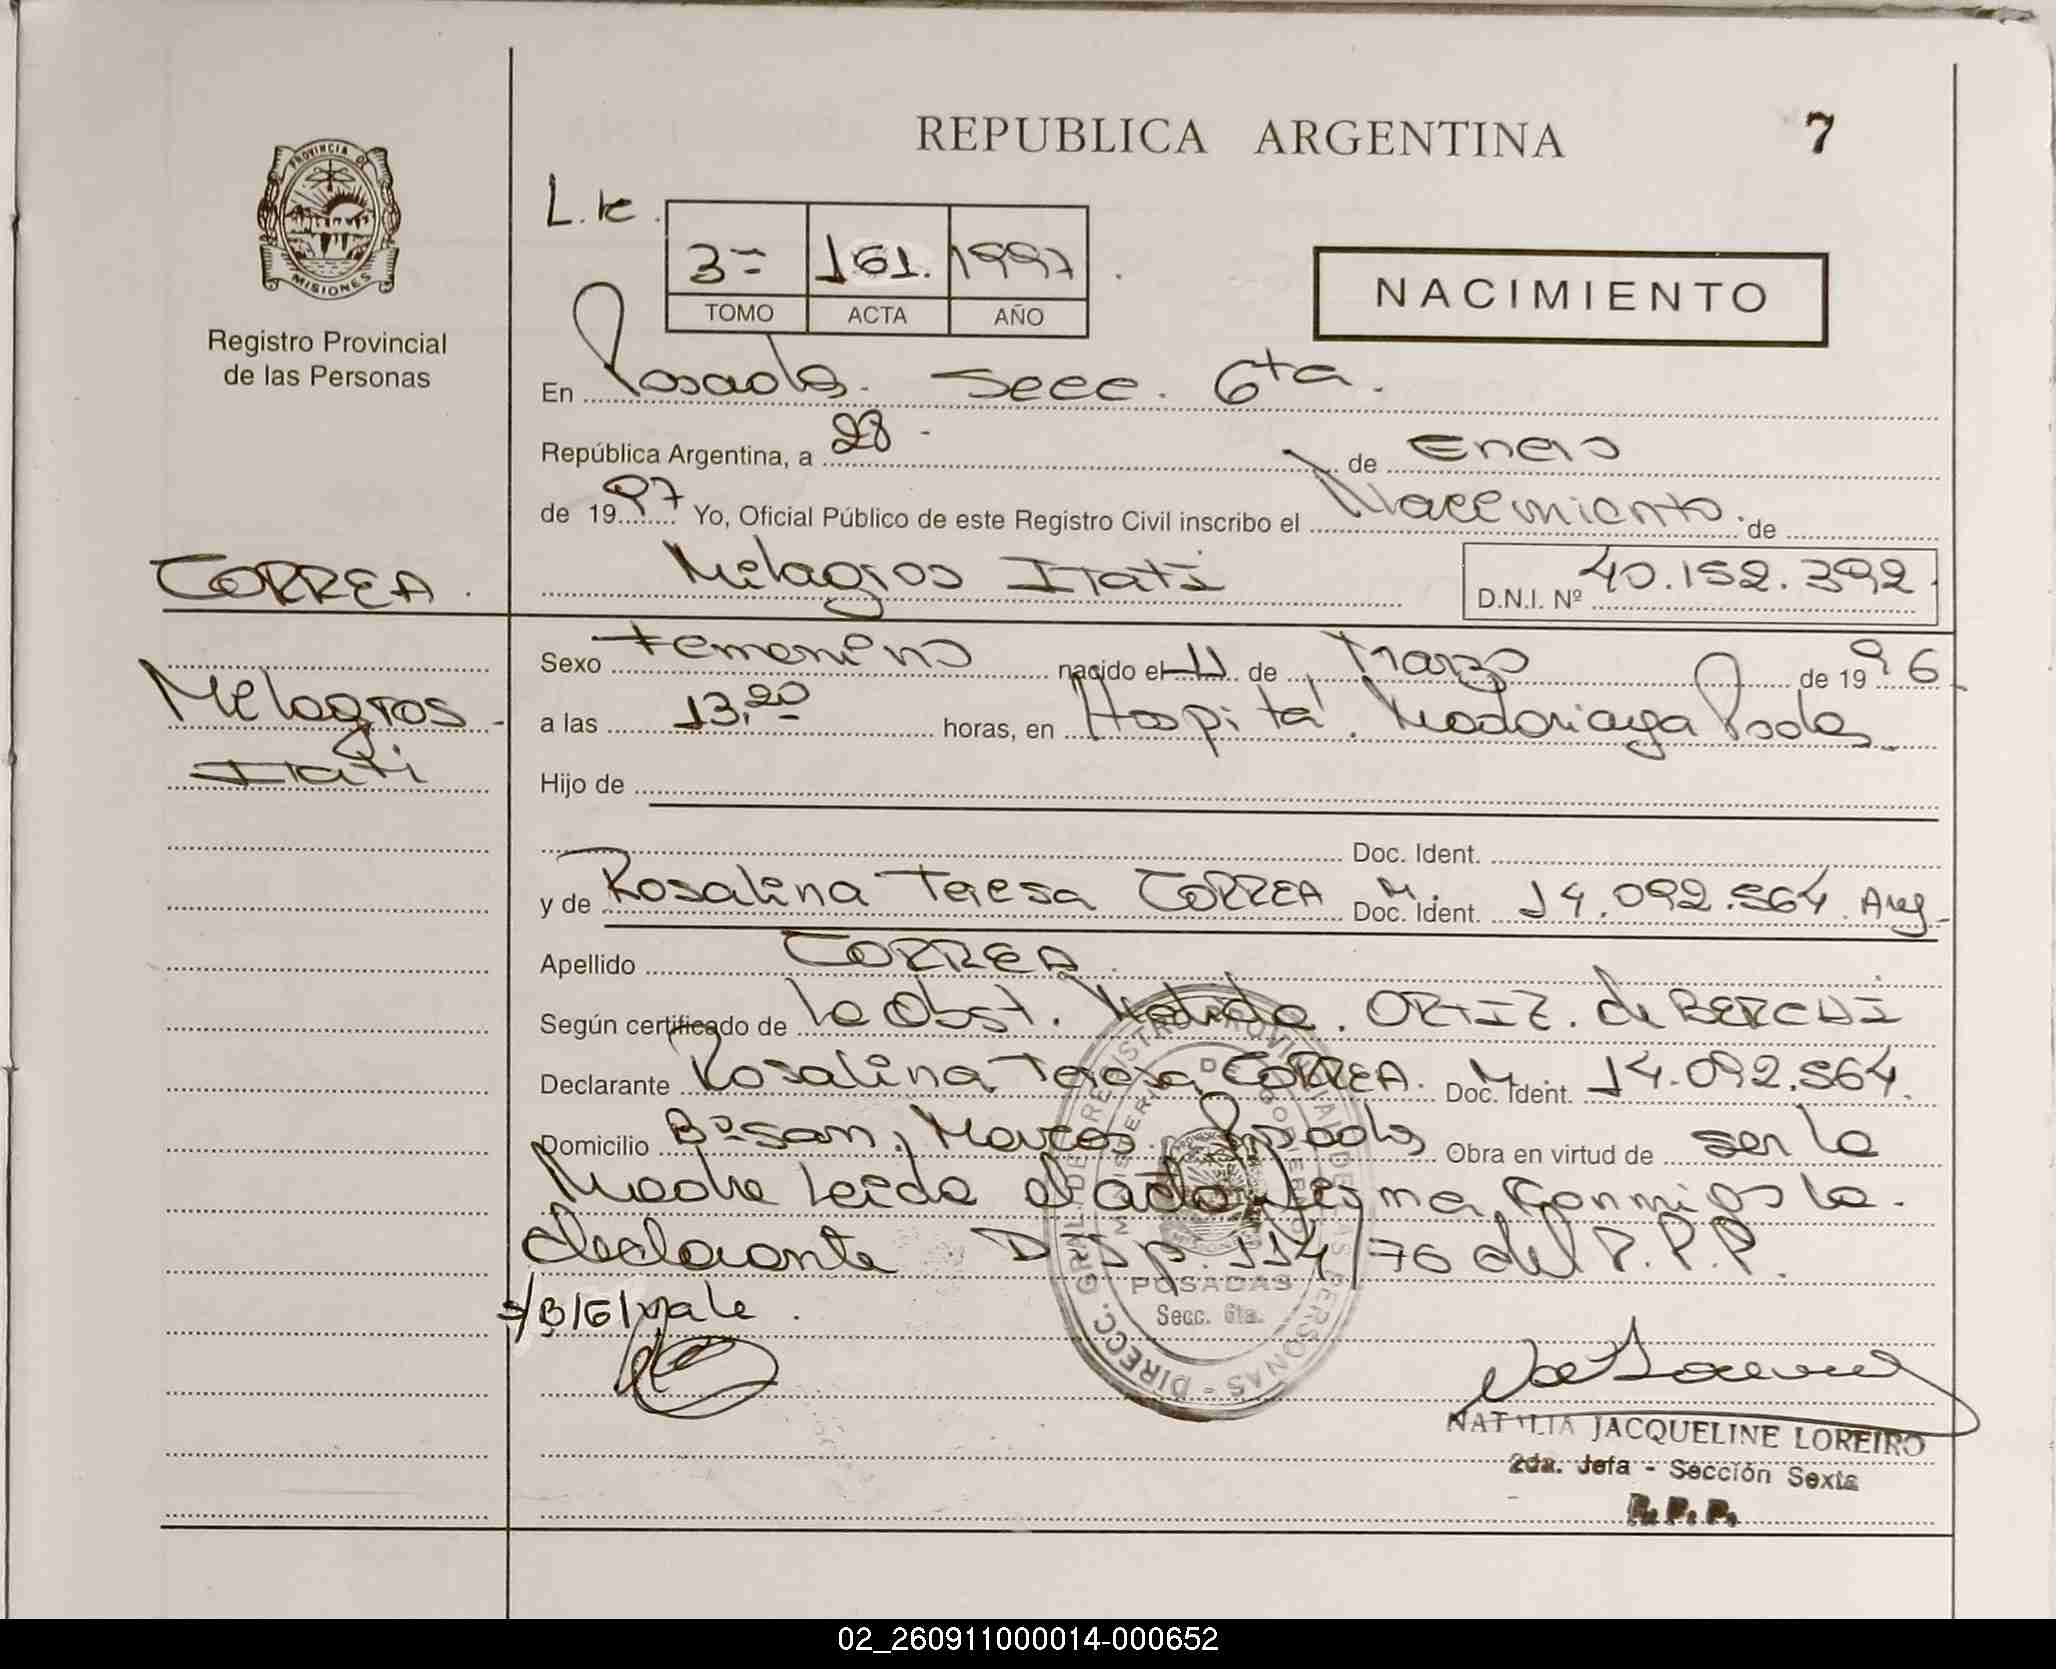 REPUBLICA ARGENTINA
7
PROVINCIA DE
MISIONES
Registro Provincial
de las Personas
3=
161.
1997
TOMO
ACTA
AÑO
NACIMIENTO
En Posadas. Secc. 6ta.
República Argentina, a 28 - de Enero
de 1997 Yo, Oficial Público de este Registro Civil inscribo el Nacemiento. de
CORREA.
Melagros Itatí
D.N.I. Nº 40.152.392.
Melagros
Itatí
Sexo Femenino nacido el 11 de Marzo de 1996
a las 13,20 horas, en Hospital. Madariaga Psdas
Hijo de
Doc. Ident.
y de Rosalina Teresa CORREA M. Doc. Ident. 14.092.564. Arg
Apellido CORREA
Según certificado de la Obst. ORTIZ. de BERCHI
Declarante Rosalina Teresa CORREA. M. Doc. Ident. 14.092.564.
Domicilio Bº San Marcos. Posadas Obra en virtud de ser la
Madre Leída el acta firma conmigo la.
declarante Disp. 114/76 del R.P.P.
/B/6/vale.
DIRECC. GRAL. DE REGISTRO PROVINCIAL DE LAS PERSONAS -
MINISTERIO DE GOBIERNO
POSADAS
Secc. 6ta.
NATALIA JACQUELINE LOREIRO
2da. Jefa - Sección Sexta
R. P. P.
02_260911000014-000652